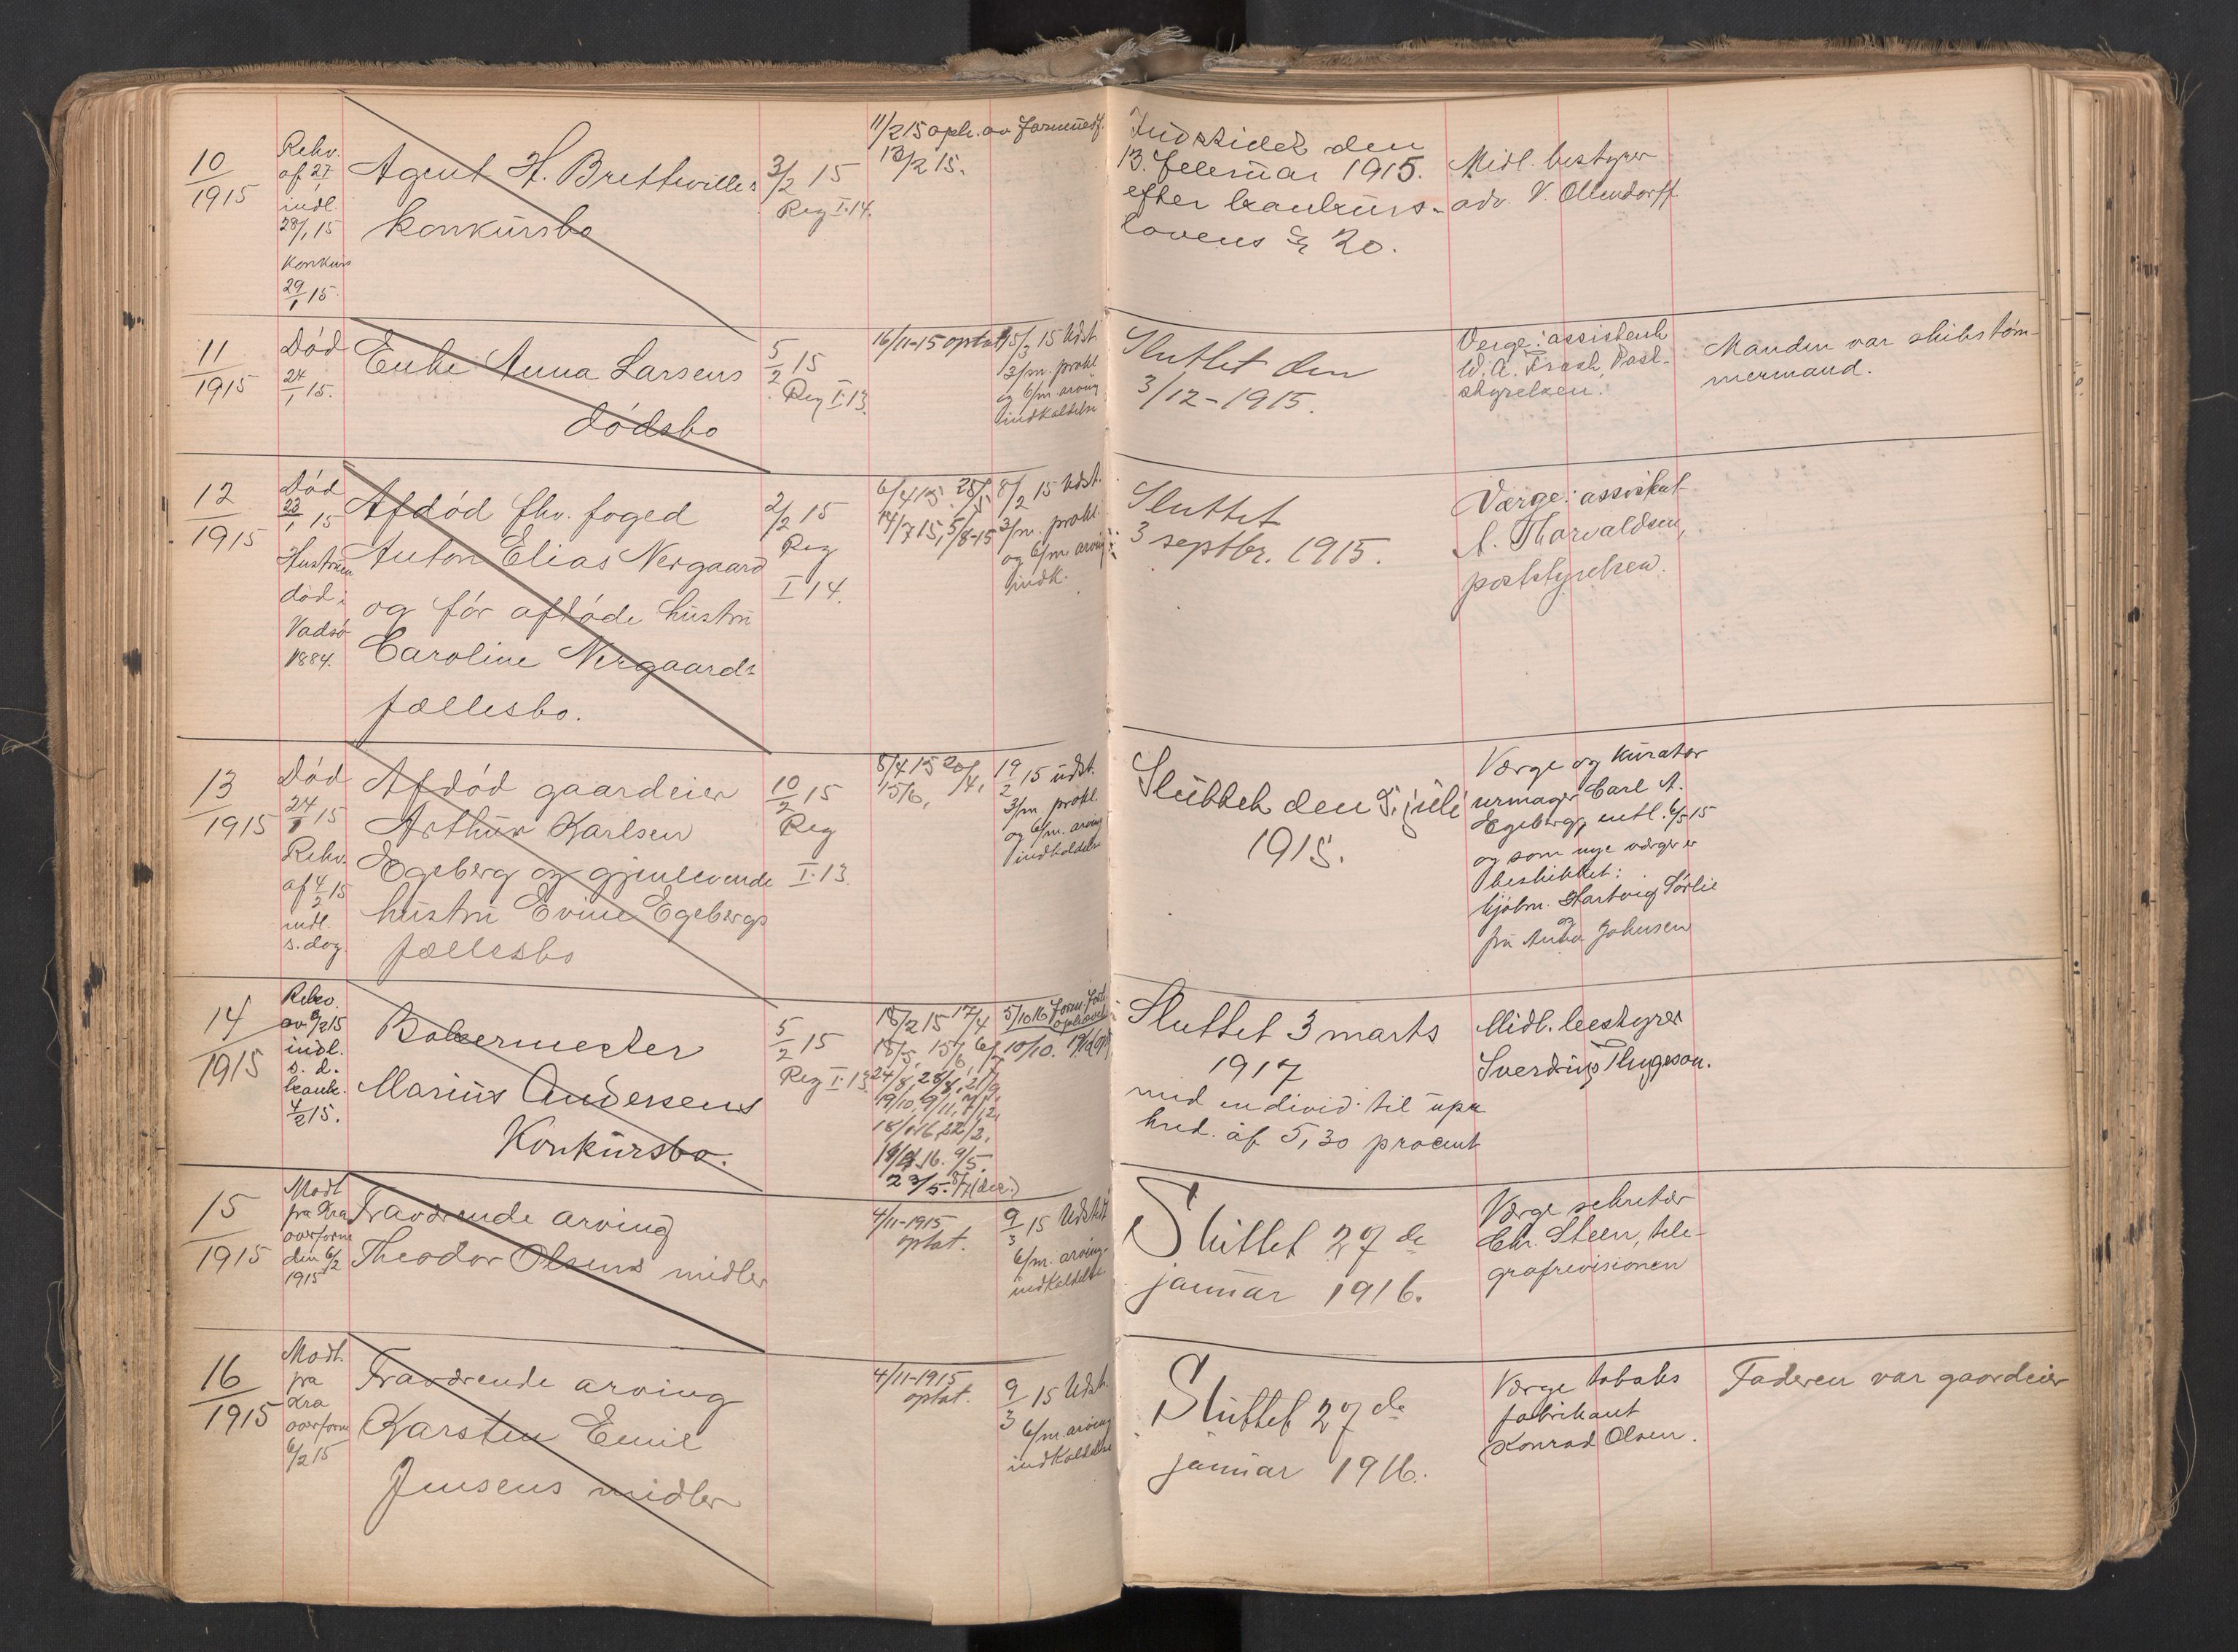 10
1915
Rekv.
af 27/1
indl.
28/1 15
Konkurs
29/1 15.
Agent H. Brettevilles
konkursbo
3/2 15
Reg I.14.
11/2 15 oph. av
13/2 15.
Indstillet den
13. februar 1915.
efter konkurs-
lovens § 20.
Midl. bestyrer
adv. V. Ollendorff
11
1915
Død
24/1 15.
Enke Anna Larsens
dødsbo
5/2 15
Reg I.13.
16/11-15 optat
15/3 15 Udst.
3/m. prokl.
og 6/m. arving
indkaldelse
Sluttet den
3/12-1915.
Verge: assistent
W. A. Frash, Post-
styrelsen.
Manden var skibstøm-
mermand.
12
1915
Død
23/1 15
Hustruen
død i
Vadsø
1884.
Afdød fhv. foged
Anton Elias Nergaard
og før afdøde hustru
Caroline Nergaards
fællesbo.
2/2 15
Reg
I 14.
6/4 15 28/5
14/7 15, 5/8-15
8/2 15 Udst.
3/m. prokl.
og 6/m arving
indk.
Sluttet
3 septbr. 1915.
Værge: assistent
A. Thorvaldsen,
poststyrelsen.
13
1915
Død
24/1 15
Rekv.
af 4/2 15
indl.
s. dag.
Afdød gaardeier
Arthur Karlsen
Egeberg og gjenlevende
hustru Evine Egebergs
fællesbo
10/2 15
Reg
I.13.
8/4 15 20/4,
15/6,
19/2 15 udst.
3/m. prokl.
og 6/m. arving
indkaldelse
Sluttet den 5. juli
1915.
Værge og kurator
urmager Carl A.
Egeberg, entl. 6/5 15
og som nye værger er
beskikket:
kjøbm. Hartvig Sørlie
og
fru Anna Johnsen
14
1915
Rekv.
av 4/2 15
indl.
s. d.
konk.
4/2 15.
Bakermester
Marius Andersens
Konkursbo.
5/2 15
Reg I.13
18/2 15 17/4
18/5, 15/6, 6/7
24/8, 28/8, 21/9,
19/10, 9/11, 7/12,
18/1 16, 22/2,
9/5.
23/5. 8/7 (dec.)
5/10 16
10/10.
Sluttet 3 marts
1917
med en divid. til upr.
kred. af 5,30 procent
Midl. bestyrer
Sverdrup Thygeson.
15
1915
Modt.
fra Kra
overform
den 6/2
1915
Fraværende arving
Theodor Olsens midler
4/11-1915
optat.
9/3 15 Udst.
6/m. arving-
indkaldelse
Sluttet 27 de
januar 1916.
Værge sekretær
Chr. Steen, tele-
grafrevisionen
16
1915
Modt.
fra
Kra
overform
6/2 15
Fraværende arving
Karsten Emil
Jensens midler
4/11-1915
optat.
9/3 15 Udst.
6/m. arving
indkaldelse
Sluttet 27 de
januar 1916.
Værge tobaks
fabrikant
Konrad Olsen.
Faderen var gaardeier